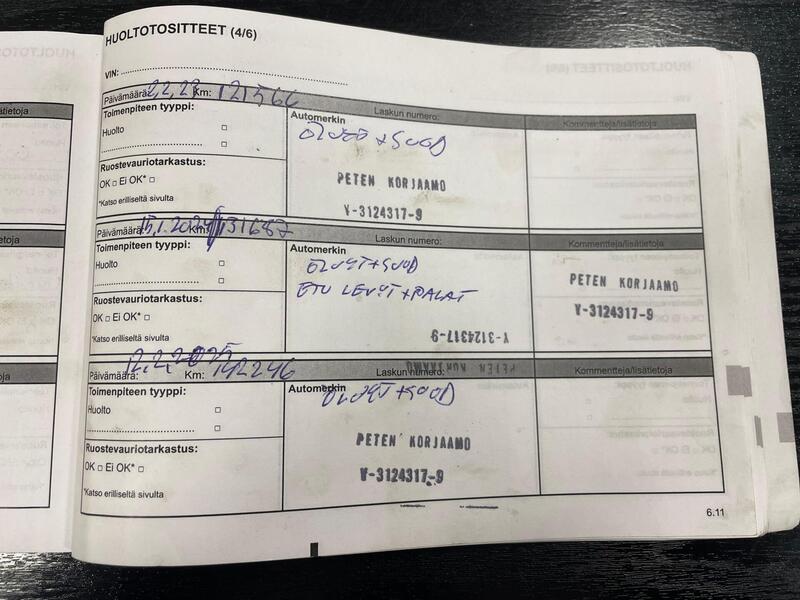 HUOLTOTOSITTEET (4/6)
VIN:
Päivämäärä: 2,2,23 Km: 121566
Laskun numero:
Kommentteja/lisätietoja
Toimenpiteen tyyppi:
Automerkin
Huolto
ÖLJYT + SUOD
Ruostevauriotarkastus:
OK □ Ei OK* □
PETEN KORJAAMO
*Katso erilliseltä sivulta
Y-3124317-9
Päivämäärä: 15,1.2024 Km: 131687
Laskun numero:
Kommentteja/lisätietoja
Toimenpiteen tyyppi:
Automerkin
Huolto
ÖLJYT + SUOD
PETEN KORJAAMO
ETU LEVYT + PALAT
Y-3124317-9
Ruostevauriotarkastus:
OK □ Ei OK* □
*Katso erilliseltä sivulta
Y-3124317-9
PETEN KORJAAMO
Päivämäärä: 12,2,2025 Km: 142246
Laskun numero:
Kommentteja/lisätietoja
Toimenpiteen tyyppi:
Automerkin
ÖLJYT + SUOD
Huolto
Ruostevauriotarkastus:
PETEN KORJAAMO
OK □ Ei OK* □
Y-3124317-9
*Katso erilliseltä sivulta
6.11